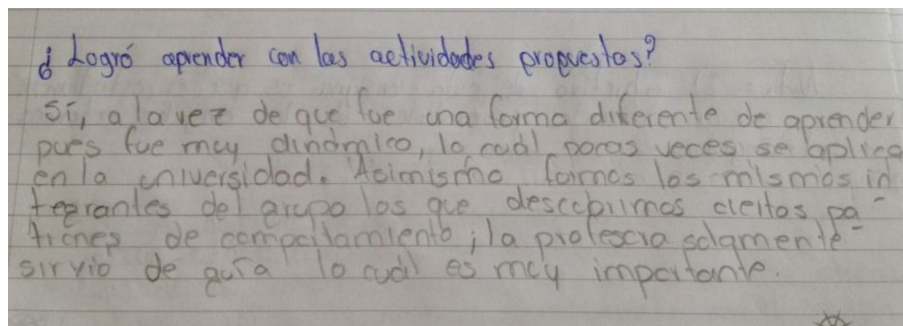 ¿Logró aprender con las actividades propuestas?
Sí, a la vez de que fue una forma diferente de aprender
pues fue muy dinámico, lo cuál pocas veces se aplica
en la universidad. Asimismo fuimos los mismos in
tegrantes del grupo los que descubrimos cieitos pa-
trones de compoitamiento; la profesora solamente
sirvió de guía lo cuál es muy importante.